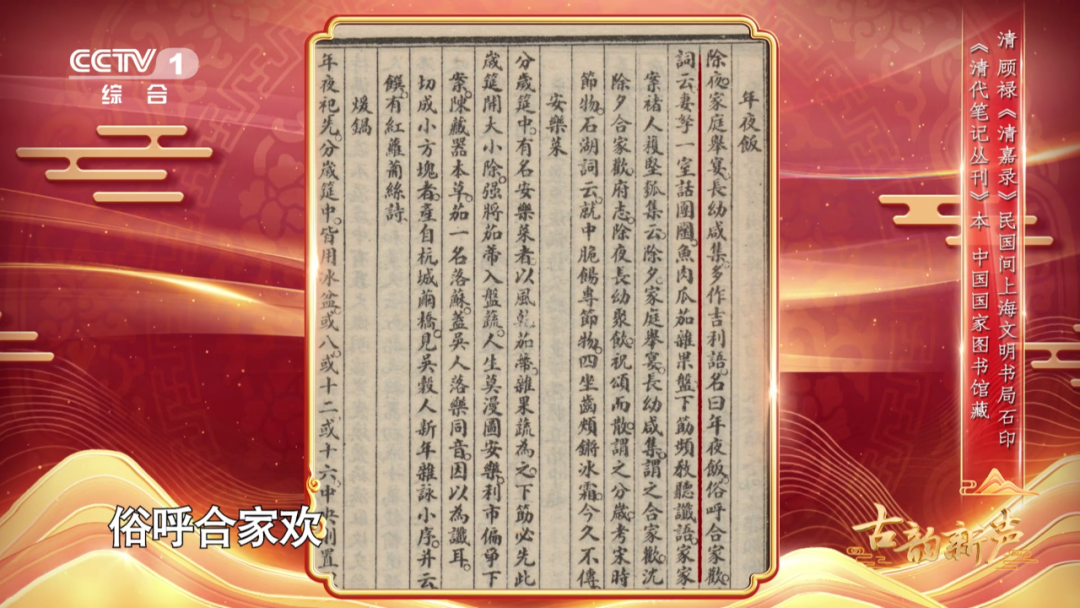 CCTV 1
综合
清 顾禄《清嘉录》民国间上海文明书局石印
《清代笔记丛刊》本 中国国家图书馆藏
年夜飯
除夜家庭舉宴長幼咸集多作吉利語名曰年夜飯俗呼合家歡
詞云妻孥一室話團圞魚肉瓜茄雜果盤下筯頻教聽讖語家家
案褚人穫堅瓠集云除夕家庭舉宴長幼咸集謂之合家歡沈
除夕合家歡府志除夜長幼聚飲祝頌而散謂之分歲考宋時
節物石湖詞云就中脆餳專節物四坐齒頰鏘冰霜今久不傳
安樂菜
分歲筵中有名安樂菜者以風乾茄蒂雜果蔬為之下筯必先此
歲筵開大小除强將茄蒂入盤蔬人生莫漫圖安樂利市偏爭下
案陳藏器本草茄一名落蘇蓋吳人落樂同音因以為讖耳
切成小方塊者產自杭城繭橋見吳穀人新年雜詠小序并云
饌有紅蘿蔔絲詩
煖鍋
年夜祀先分歲筵中皆用冰盆或八或十二或十六中央則置
俗呼合家欢
古韵新声